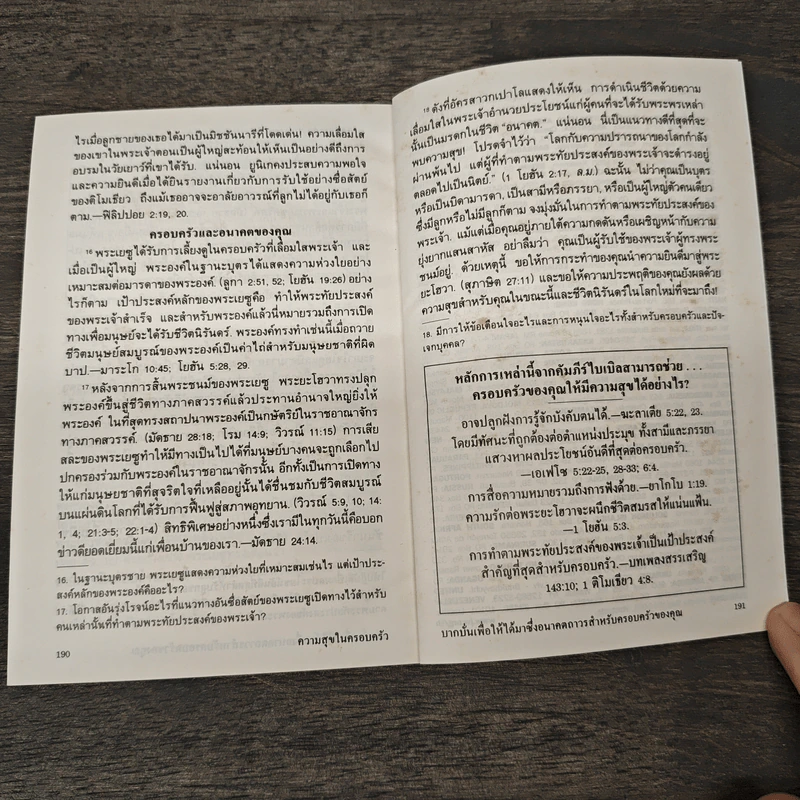 ไรเมื่อลูกชายของเธอได้มาเป็นมิชชันนารีที่โดดเด่น! ความเลื่อมใส
ของเขาในพระเจ้าตอนเป็นผู้ใหญ่สะท้อนให้เห็นเป็นอย่างดีถึงการ
อบรมในวัยเยาว์ที่เขาได้รับ. แน่นอน ยูนิเกคงประสบความพอใจ
และความยินดีเมื่อได้ยินรายงานเกี่ยวกับการรับใช้อย่างซื่อสัตย์
ของติโมเธียว ถึงแม้เธออาจจะอาลัยอาวรณ์ที่ลูกไม่ได้อยู่กับเธอก็
ตาม.—ฟิลิปปอย 2:19, 20.
ครอบครัวและอนาคตของคุณ
16 พระเยซูได้รับการเลี้ยงดูในครอบครัวที่เลื่อมใสพระเจ้า และ
เมื่อเป็นผู้ใหญ่ พระองค์ในฐานะบุตรได้แสดงความห่วงใยอย่าง
เหมาะสมต่อมารดาของพระองค์ (ลูกา 2:51, 52; โยฮัน 19:26) อย่าง
ไรก็ตาม เป้าประสงค์หลักของพระเยซูคือ ทำให้พระทัยประสงค์
ของพระเจ้าสำเร็จ และสำหรับพระองค์แล้วนี่หมายรวมถึงการเปิด
ทางเพื่อมนุษย์จะได้รับชีวิตนิรันดร์. พระองค์ทรงทำเช่นนี้เมื่อถวาย
ชีวิตมนุษย์สมบูรณ์ของพระองค์เป็นค่าไถ่สำหรับมนุษยชาติที่ผิด
บาป.—มาระโก 10:45; โยฮัน 5:28, 29.
17 หลังจากการสิ้นพระชนม์ของพระเยซู พระยะโฮวาทรงปลุก
พระองค์ขึ้นสู่ชีวิตทางภาคสวรรค์แล้วประทานอำนาจใหญ่ยิ่งให้
พระองค์ ในที่สุดทรงสถาปนาพระองค์เป็นกษัตริย์ในราชอาณาจักร
ทางภาคสวรรค์. (มัดธาย 28:18; โรม 14:9; วิวรณ์ 11:15) การเสีย
สละของพระเยซูทำให้มีทางเป็นไปได้ที่มนุษย์บางคนจะถูกเลือกไป
ปกครองร่วมกับพระองค์ในราชอาณาจักรนั้น อีกทั้งเป็นการเปิดทาง
ให้แก่มนุษยชาติที่สุจริตใจที่เหลืออยู่นั้นได้ชื่นชมกับชีวิตสมบูรณ์
บนแผ่นดินโลกที่ได้รับการฟื้นฟูสู่สภาพอุทยาน. (วิวรณ์ 5:9, 10; 14:
1, 4; 21:3-5; 22:1-4) สิทธิพิเศษอย่างหนึ่งซึ่งเรามีในทุกวันนี้คือบอก
ข่าวดียอดเยี่ยมนี้แก่เพื่อนบ้านของเรา.—มัดธาย 24:14.
16. ในฐานะบุตรชาย พระเยซูแสดงความห่วงใยที่เหมาะสมเช่นไร แต่เป้าประ-
สงค์หลักของพระองค์คืออะไร?
17. โอกาสอันรุ่งโรจน์อะไรที่แนวทางอันซื่อสัตย์ของพระเยซูเปิดทางไว้สำหรับ
คนเหล่านั้นที่ทำตามพระทัยประสงค์ของพระเจ้า?
190
ความสุขในครอบครัว
18 ดังที่อัครสาวกเปาโลแสดงให้เห็น การดำเนินชีวิตด้วยความ
เลื่อมใสในพระเจ้าอำนวยประโยชน์แก่ผู้คนที่จะได้รับพระพรเหล่า
นั้นเป็นมรดกในชีวิต "อนาคต." แน่นอน นี่เป็นแนวทางดีที่สุดที่จะ
พบความสุข! โปรดจำไว้ว่า "โลกกับความปรารถนาของโลกกำลัง
ผ่านพ้นไป แต่ผู้ที่ทำตามพระทัยประสงค์ของพระเจ้าจะดำรงอยู่
ตลอดไปเป็นนิตย์." (1 โยฮัน 2:17, ล.ม.) ฉะนั้น ไม่ว่าคุณเป็นบุตร
หรือเป็นบิดามารดา, เป็นสามีหรือภรรยา, หรือเป็นผู้ใหญ่ตัวคนเดียว
ซึ่งมีลูกหรือไม่มีลูกก็ตาม จงมุ่งมั่นในการทำตามพระทัยประสงค์ของ
พระเจ้า. แม้แต่เมื่อคุณอยู่ภายใต้ความกดดันหรือเผชิญหน้ากับความ
ยุ่งยากแสนสาหัส อย่าลืมว่า คุณเป็นผู้รับใช้ของพระเจ้าผู้ทรงพระ
ชนม์อยู่. ด้วยเหตุนี้ ขอให้การกระทำของคุณนำความยินดีมาสู่พระ
ยะโฮวา. (สุภาษิต 27:11) และขอให้ความประพฤติของคุณยังผลด้วย
ความสุขสำหรับคุณในขณะนี้และชีวิตนิรันดร์ในโลกใหม่ที่จะมาถึง!
18. มีการให้ข้อเตือนใจอะไรและการหนุนใจอะไรทั้งสำหรับครอบครัวและปัจ-
เจกบุคคล?
หลักการเหล่านี้จากคัมภีร์ไบเบิลสามารถช่วย . . .
ครอบครัวของคุณให้มีความสุขได้อย่างไร?
อาจปลูกฝังการรู้จักบังคับตนได้.—ฆะลาเตีย 5:22, 23.
โดยมีทัศนะที่ถูกต้องต่อตำแหน่งประมุข ทั้งสามีและภรรยา
แสวงหาผลประโยชน์อันดีที่สุดต่อครอบครัว.
—เอเฟโซ 5:22-25, 28-33; 6:4.
การสื่อความหมายรวมถึงการฟังด้วย.—ยาโกโบ 1:19.
ความรักต่อพระยะโฮวาจะผนึกชีวิตสมรสให้แน่นแฟ้น.
—1 โยฮัน 5:3.
การทำตามพระทัยประสงค์ของพระเจ้าเป็นเป้าประสงค์
สำคัญที่สุดสำหรับครอบครัว.—บทเพลงสรรเสริญ
143:10; 1 ติโมเธียว 4:8.
บากบั่นเพื่อให้ได้มาซึ่งอนาคตถาวรสำหรับครอบครัวของคุณ
191